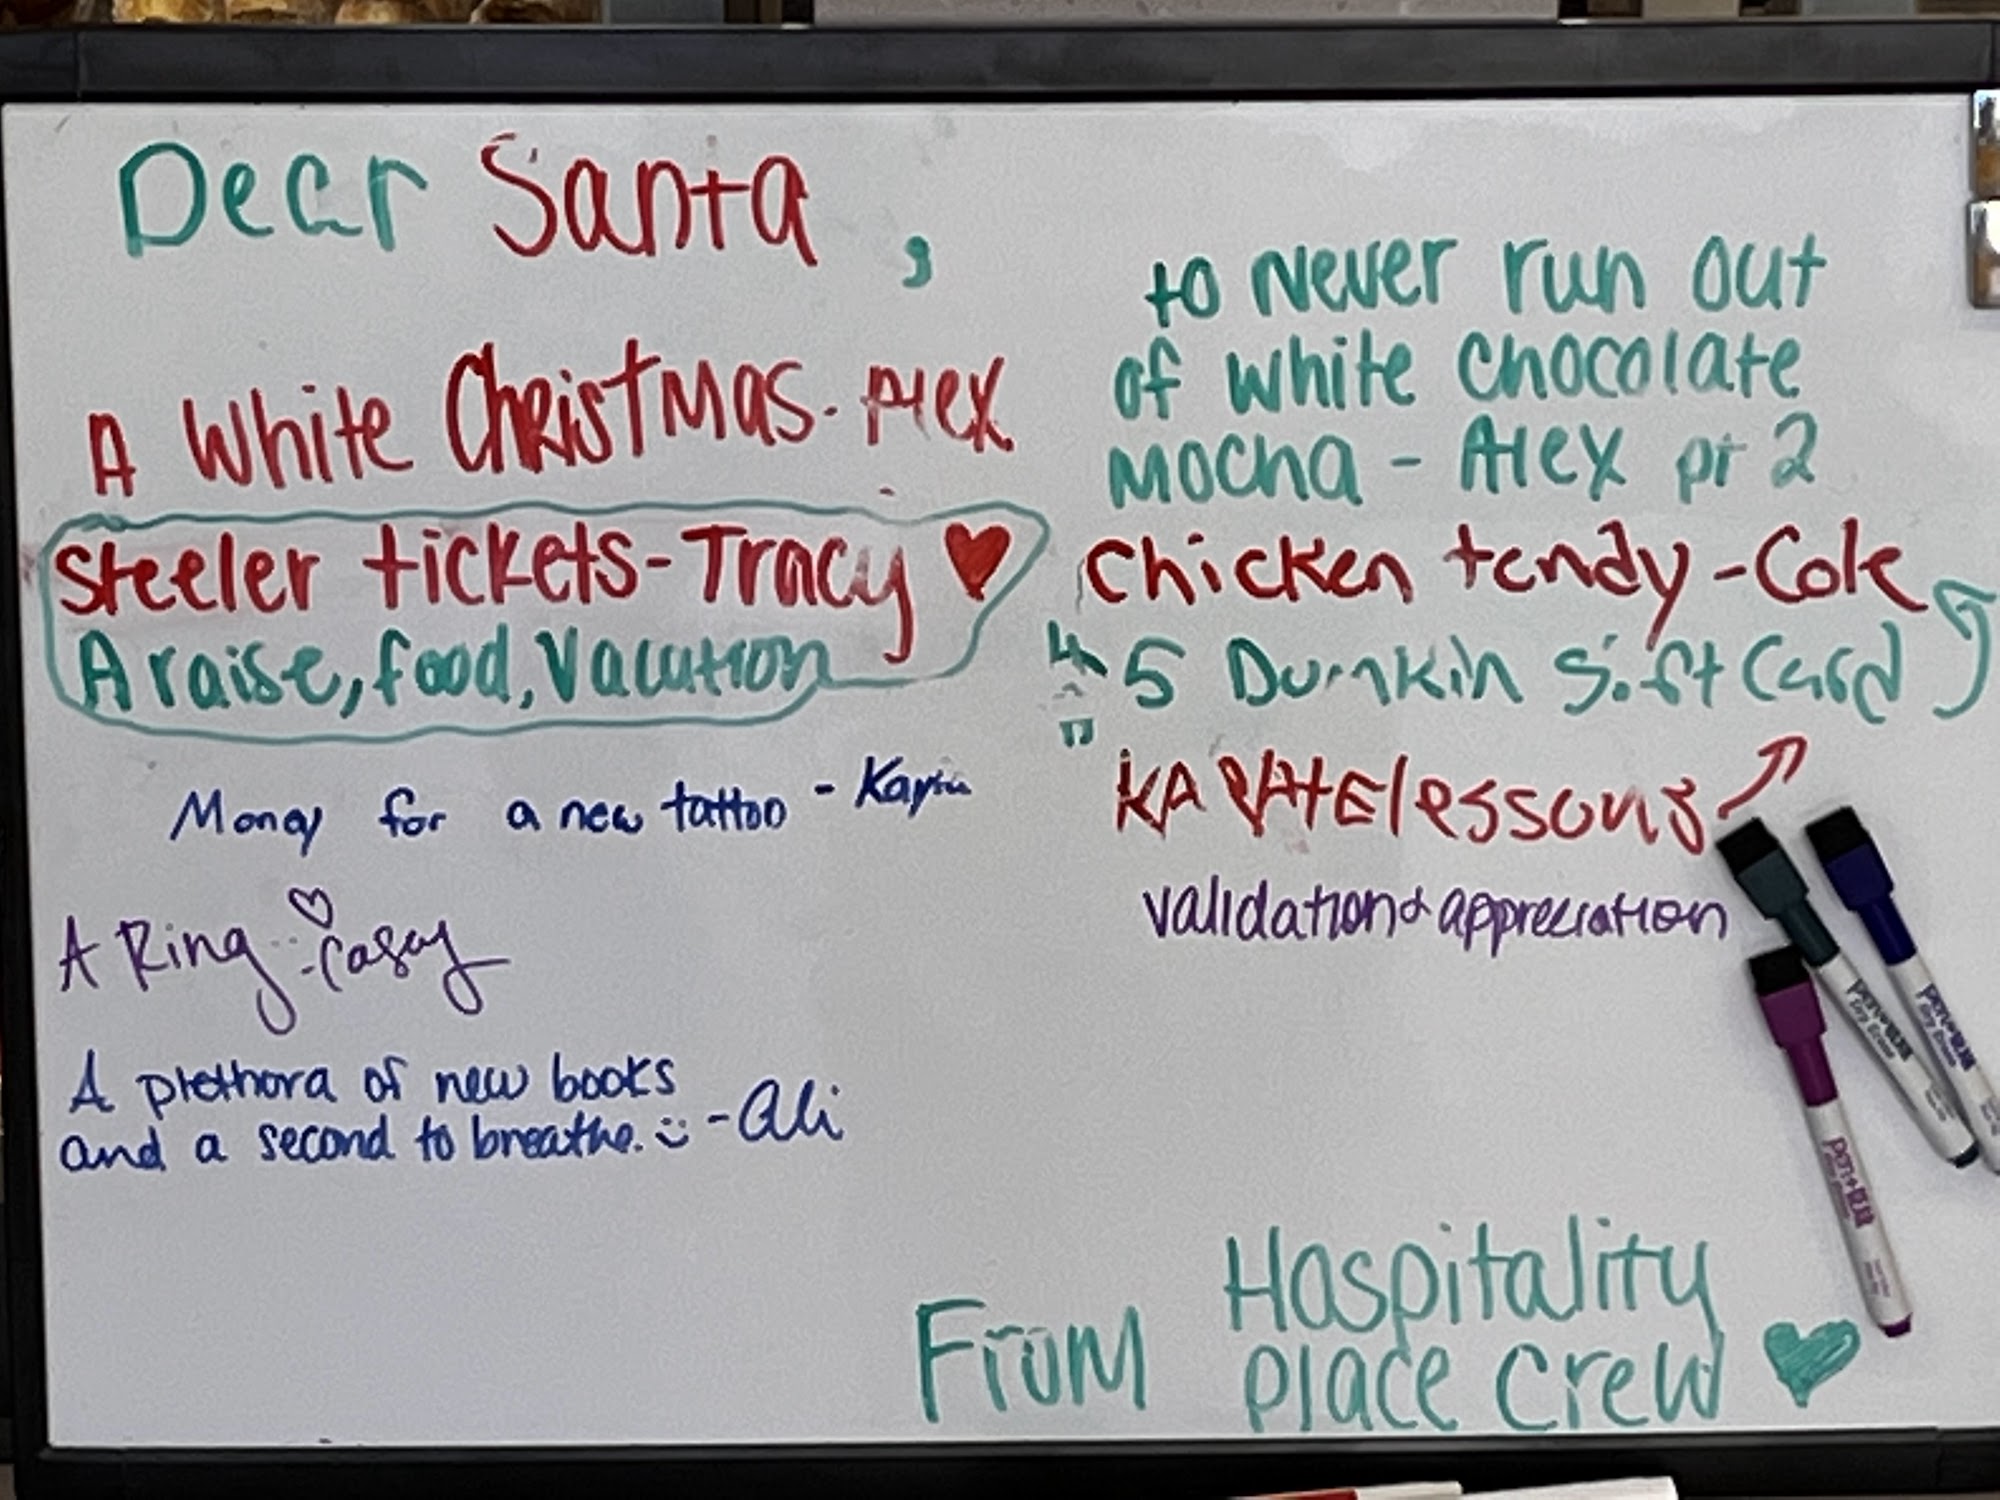 Dear Santa,
A White Christmas - Alex
Steeler tickets - Tracy
A raise, food, Vacation
Money for a new tattoo -
A Ring - Casey
A plethora of new books
and a second to breathe. - Ali
to never run out
of white chocolate
mocha - Alex pt 2
chicken tendy - Cole
5 Dunkin Gift Card
KARATE lessons
validation & appreciation
From Hospitality
place crew
pen+gear
Dry Erase
pen+gear
Dry Erase
pen+gear